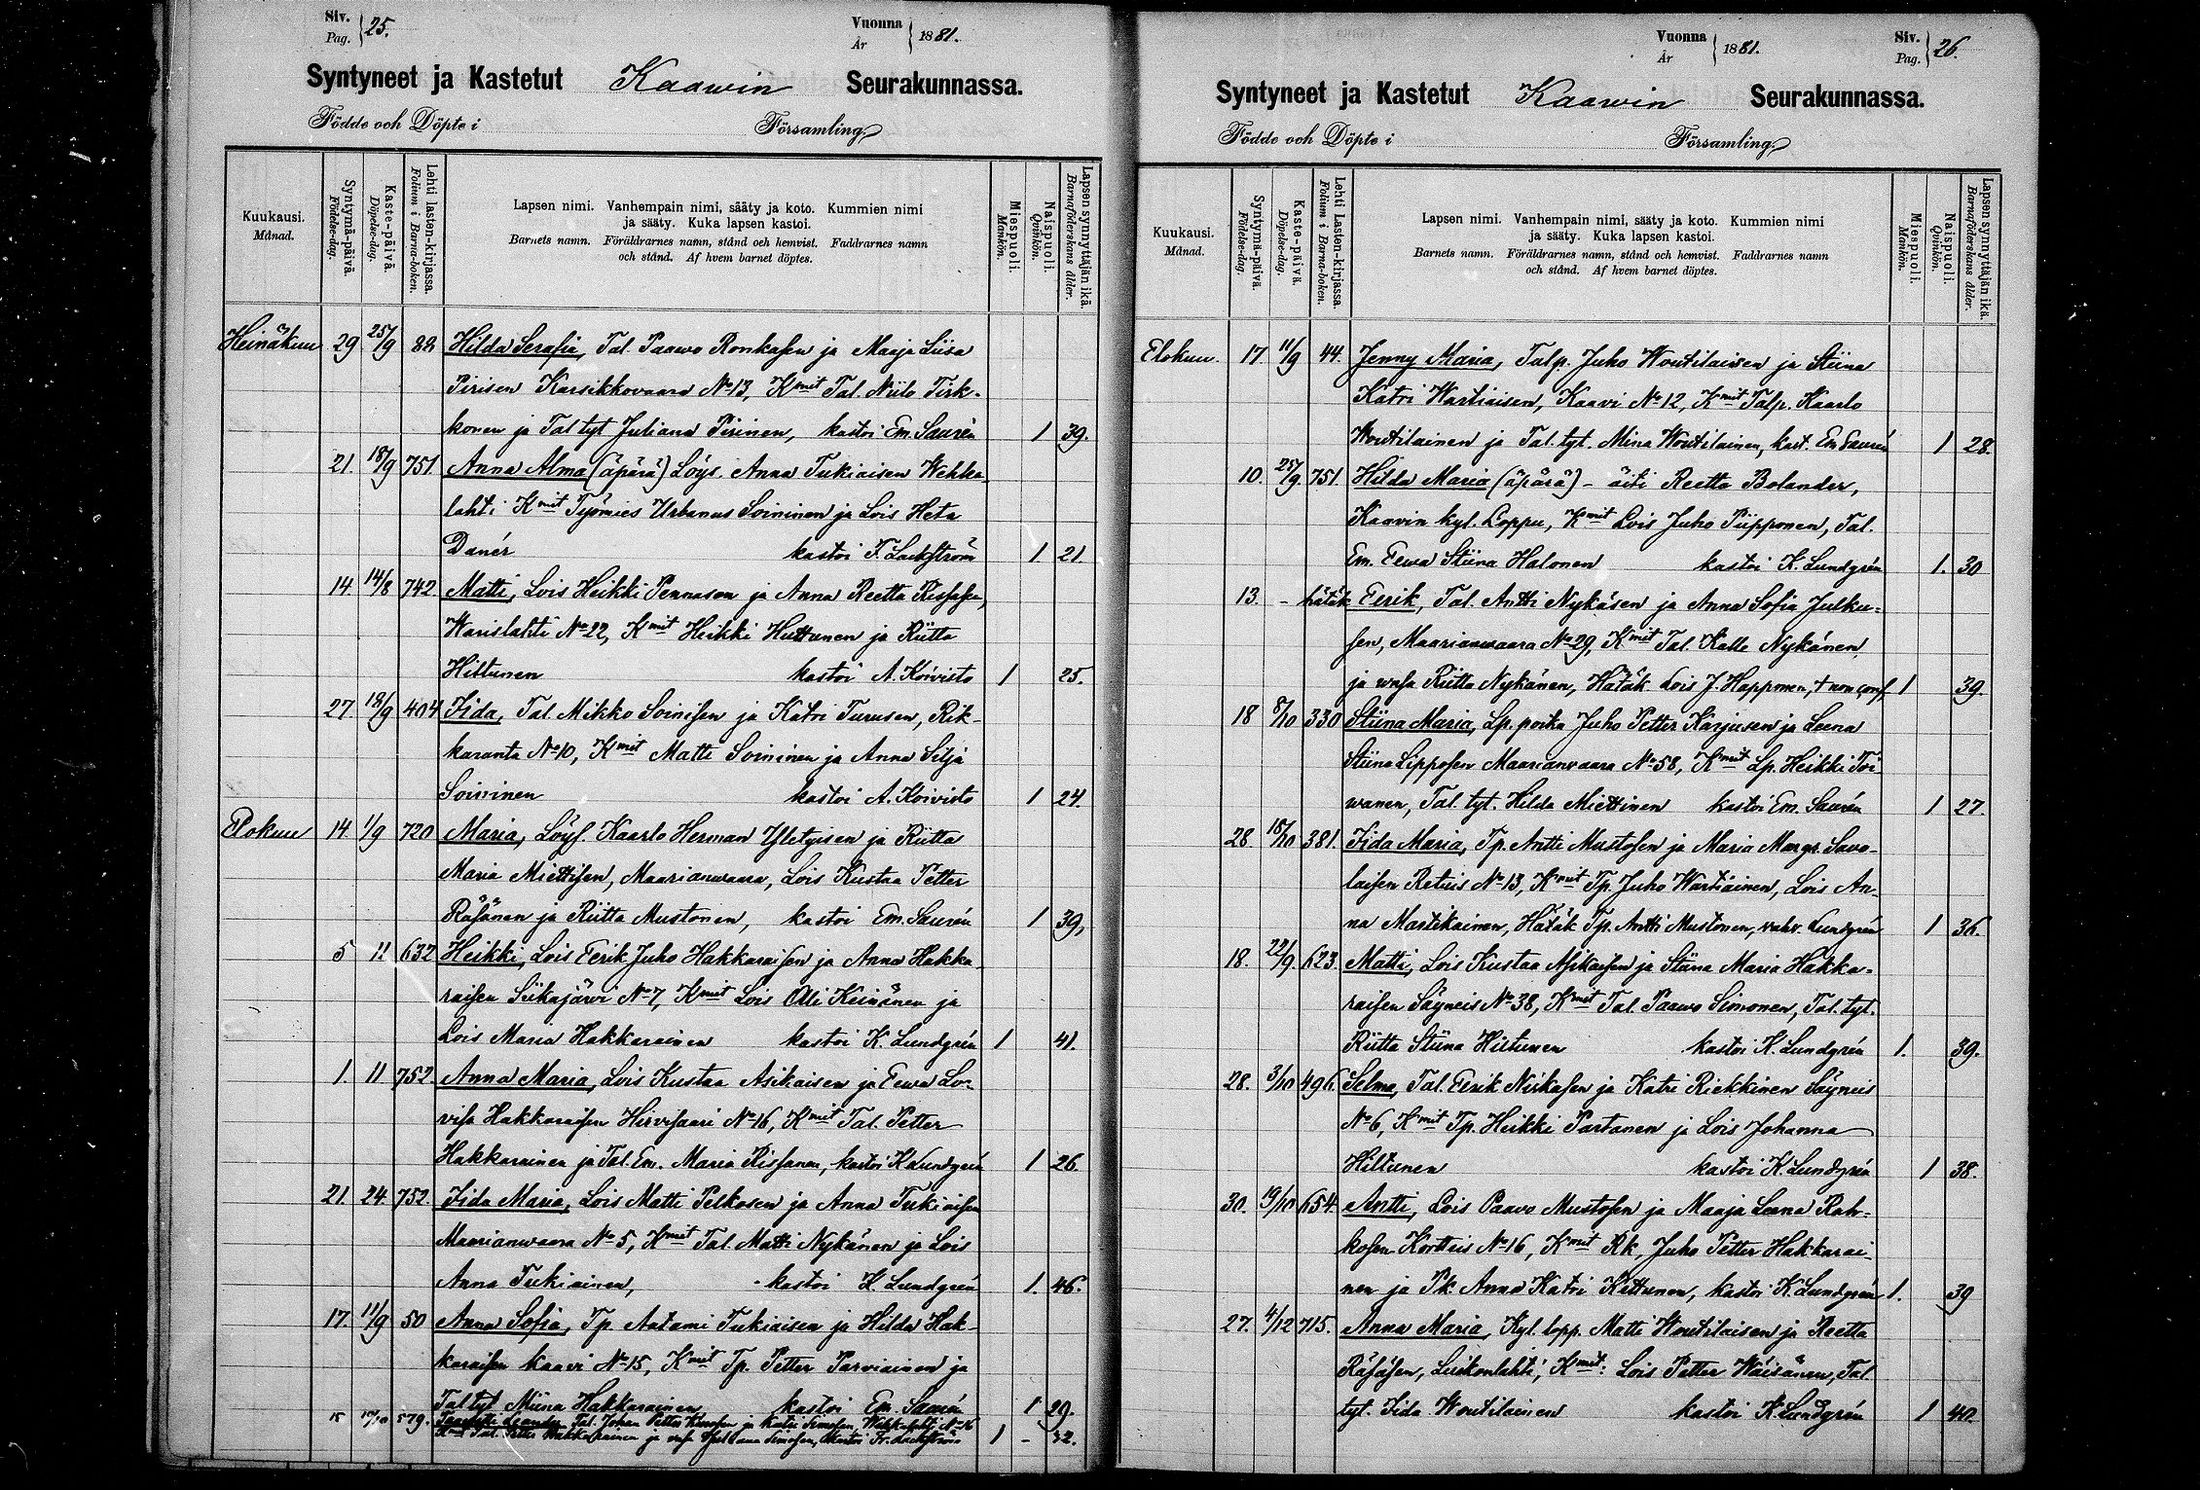 Siv. Pag. } 25.
Vuonna År } 1881.
Syntyneet ja Kastetut Kaawin Seurakunnassa.
Födde och Döpte i Församling
Kuukausi. Månad.
Syntymä-päivä. Födelse-dag.
Kaste-päivä. Döpelse-dag.
Lehti lasten-kirjassa. Folium i Barna-boken.
Lapsen nimi. Vanhempain nimi, sääty ja koto. Kummien nimi
ja sääty. Kuka lapsen kastoi.
Barnets namn. Föräldrarnes namn, stånd och hemvist. Faddrarnes namn
och stånd. Af hvem barnet döptes.
Miespuoli. Mankön.
Naispuoli. Qvinkön.
Lapsen synnyttäjän ikä. Barnaföderskans ålder.
Heinäkuu 29 25/9 82 Hilda Serafia, Tal. Paawo Ronkasen ja Maaja Liisa
Pirisen Karsikkovaara No 13, Kmit Tal. Niilo Tirk-
konen ja Tal tyt Juliana Pirinen, kastoi Em. Saurén 1 39.
21. 18/9 751. Anna Alma (äpärä) Löys. Anna Tukiaisen Wehka-
lahti Kmit Työmies Urbanus Soininen ja Lois Heta
Danér kastoi F. Lackström 1. 21.
14. 14/8 742 Matti, Lois Heikki Pennasen ja Anna Reetta Kissasen,
Warislahti No 22, Kmit Heikki Huttunen ja Riitta
Hiltunen kastoi A. Koivisto 1 25.
27. 18/9 404 Iida, Tal. Mikko Soinisen ja Katri Turusen, Rik-
karanta No 10, Kmit Matti Soininen ja Anna Silja
Soininen kastoi A. Koivisto 1 24.
Elokuu 14. 1/9 720 Maria, Löys. Kaarlo Herman Yletyisen ja Riitta
Maria Miettisen, Maarianwaara, Lois Kustaa Petter
Räsänen ja Riitta Mustonen, kastoi Em. Saurén 1 39,
5 11 632 Heikki, Lois Eerik Juho Hakkaraisen ja Anna Hakka-
raisen Siikajärwi No 7, Kmit Lois Olli Keinänen ja
Lois Maria Hakkarainen kastoi K. Lundgrén 1 41.
1. 11 752. Anna Maria, Lois Kustaa Asikaisen ja Eewa Lo-
visa Hakkaraisen Hirvisaari No 16, Kmit Tal. Petter
Hakkarainen ja Tal. Em. Maria Kissanen, kastoi K. Lundgrén 1 26.
21. 24. 752. Iida Maria, Lois Matti Pelkosen ja Anna Tukiaisen
Maarianwaara No 5, Kmit Tal. Matti Nykänen ja Lois
Anna Tukiainen, kastoi K. Lundgrén 1. 46.
17. 11/9 50 Anna Sofia, Tp. Aatami Tukiaisen ja Hilda Hak-
karaisen Kaavi No 15, Kmit Tp. Petter Parviainen ja
Tal tyt Miina Hakkarainen kastoi Em. Saurén 1 29.
15 579. Taavetti Leander, Tal. Johan Petter ja Katri Simosen Wehkalahti No
Kmit Tal. Petter Hakkarainen ja Simosen, kastoi Fr. Lackström 1 - 32.
Vuonna År } 1881.
Siv. Pag. } 26.
Syntyneet ja Kastetut Kaawin Seurakunnassa.
Födde och Döpte i Församling
Kuukausi. Månad.
Syntymä-päivä. Födelse-dag.
Kaste-päivä. Döpelse-dag.
Lehti Lasten-kirjassa. Folium i Barna-boken.
Lapsen nimi. Vanhempain nimi, sääty ja koto. Kummien nimi
ja sääty. Kuka lapsen kastoi.
Barnets namn. Föräldrarnes namn, stånd och hemvist. Faddrarnes namn
och stånd. Af hvem barnet döptes.
Miespuoli. Mankön.
Naispuoli. Qvinkön.
Lapsen synnyttäjän ikä. Barnaföderskans ålder.
Elokuu. 17. 11/9 44. Jenny Maria, Talp. Juho Woutilaisen ja Stiina
Katri Wartiaisen, Kaavi No 12, Kmit Talp. Kaarlo
Woutilainen ja Tal. tyt. Mina Woutilainen, kast. Em Saurén 1 28.
10. 25/9 751. Hilda Maria (äpärä) - äiti Reetta Bolander,
Kaavin kyl. Loppu, Kmit Lois Juho Piipponen, Tal.
Em. Eewa Stiina Halonen kastoi K. Lundgrén 1. 30
13. - hätäk Eerik, Tal. Antti Nykäsen ja Anna Sofia Julku-
sen, Maarianwaara No 29, Kmit Tal. Kalle Nykänen
ja wasa Riitta Nykänen, Hätäk Lois J. Happonen, † non conf 1 39.
18 8/10 330 Stiina Maria, Lp. poika Juho Petter Karjusen ja Leena
Stiina Lipposen Maarianvaara No 58, Kmit Lp. Heikki Toi-
wanen, Tal. tyt. Hilda Miettinen kastoi Em. Saurén 1 27.
28 18/10 381. Iida Maria, Tp. Antti Mustosen ja Maria Margr. Savo-
laisen Retuis No 13, Kmit Tp. Juho Wartiainen, Lois An-
na Martikainen, Hätäk Tp. Antti Mustonen, vahv. Lundgrén 1 36.
18. 22/9 623. Matti, Lois Kustaa Asikaisen ja Stiina Maria Hakka-
raisen Säyneis No 38, Kmit Tal. Paawo Simonen, Tal. tyt.
Riitta Stiina Hiltunen kastoi K. Lundgrén 1. 39.
28. 3/10 496. Selma, Tal. Eerik Niskasen ja Katri Riekkinen Säyneis
No 6, Kmit Tp. Heikki Partanen ja Lois Johanna
Hiltunen kastoi K. Lundgrén 1 38.
30. 19/10 654. Antti, Lois Paavo Mustosen ja Maaja Leena Rah-
kosen Kortteis No 16, Kmit Rk. Juho Petter Hakkarai-
nen ja Pk. Anna Katri Kettunen, kastoi K. Lundgrén 1. 39
27. 4/12 715. Anna Maria, Kyl. lopp. Matti Woutilaisen ja Reetta
Räsäsen, Luikonlahti, Kmit: Lois Petter Wäisänen, Tal
tyt. Iida Woutilainen kastoi K. Lundgrén 1 40.